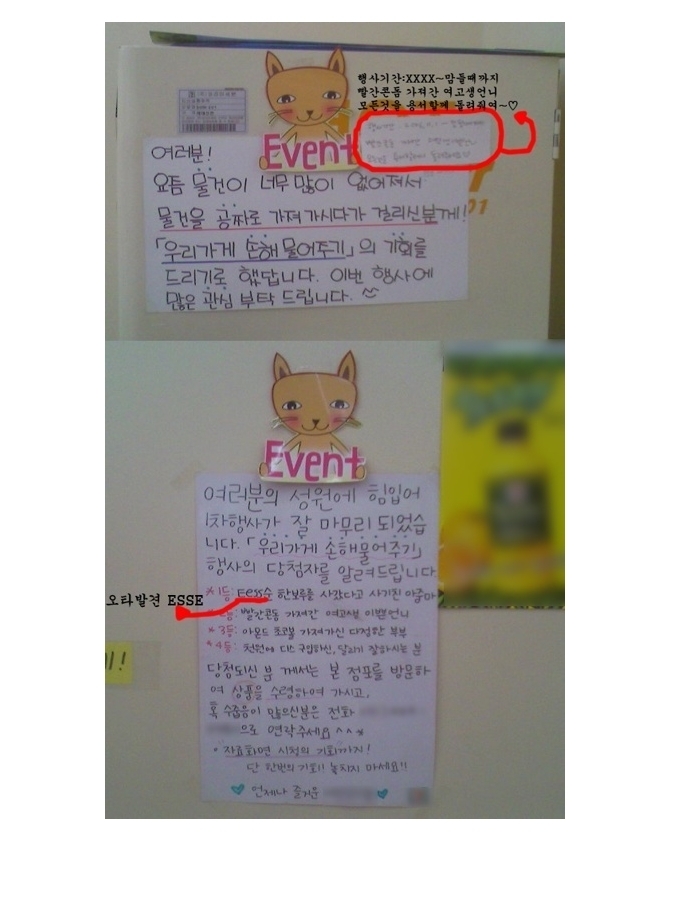 행사기간:XXXX~맘들때까지
빨간콘돔 가져간 여고생언니
모든것을 용서할께 돌려줘여~♡
Event
여러분!
요즘 물건이 너무 많이 없어져서
물건을 공짜로 가져가시다가 걸리신분께!
「우리가게 손해 물어주기」의 기회를
드리기로 했답니다. 이번 행사에
많은 관심 부탁 드립니다.
01
Event
여러분의 성원에 힘입어
1차행사가 잘 마무리 되었습
니다.「우리가게 손해물어주기」
행사의 당첨자를 알려드립니다
*1등: Eess수 한보루를 사갔다고 사기친 아줌마
오타발견 ESSE
빨간콘돔 가져간 여고생 이쁜언니
*3등: 아몬드 초코볼 가져가신 다정한 부부
*4등: 천원에 디스 구입하신, 달리기 잘하시는 분
당첨되신 분 께서는 본 점포를 방문하
여 상품을 수령하여 가시고,
혹 수줍음이 많으신분은 전화
으로 연락주세요 ^^*
자료화면 시청의 기회까지!
단 한번의 기회!! 놓치지 마세요!!
언제나 즐거운